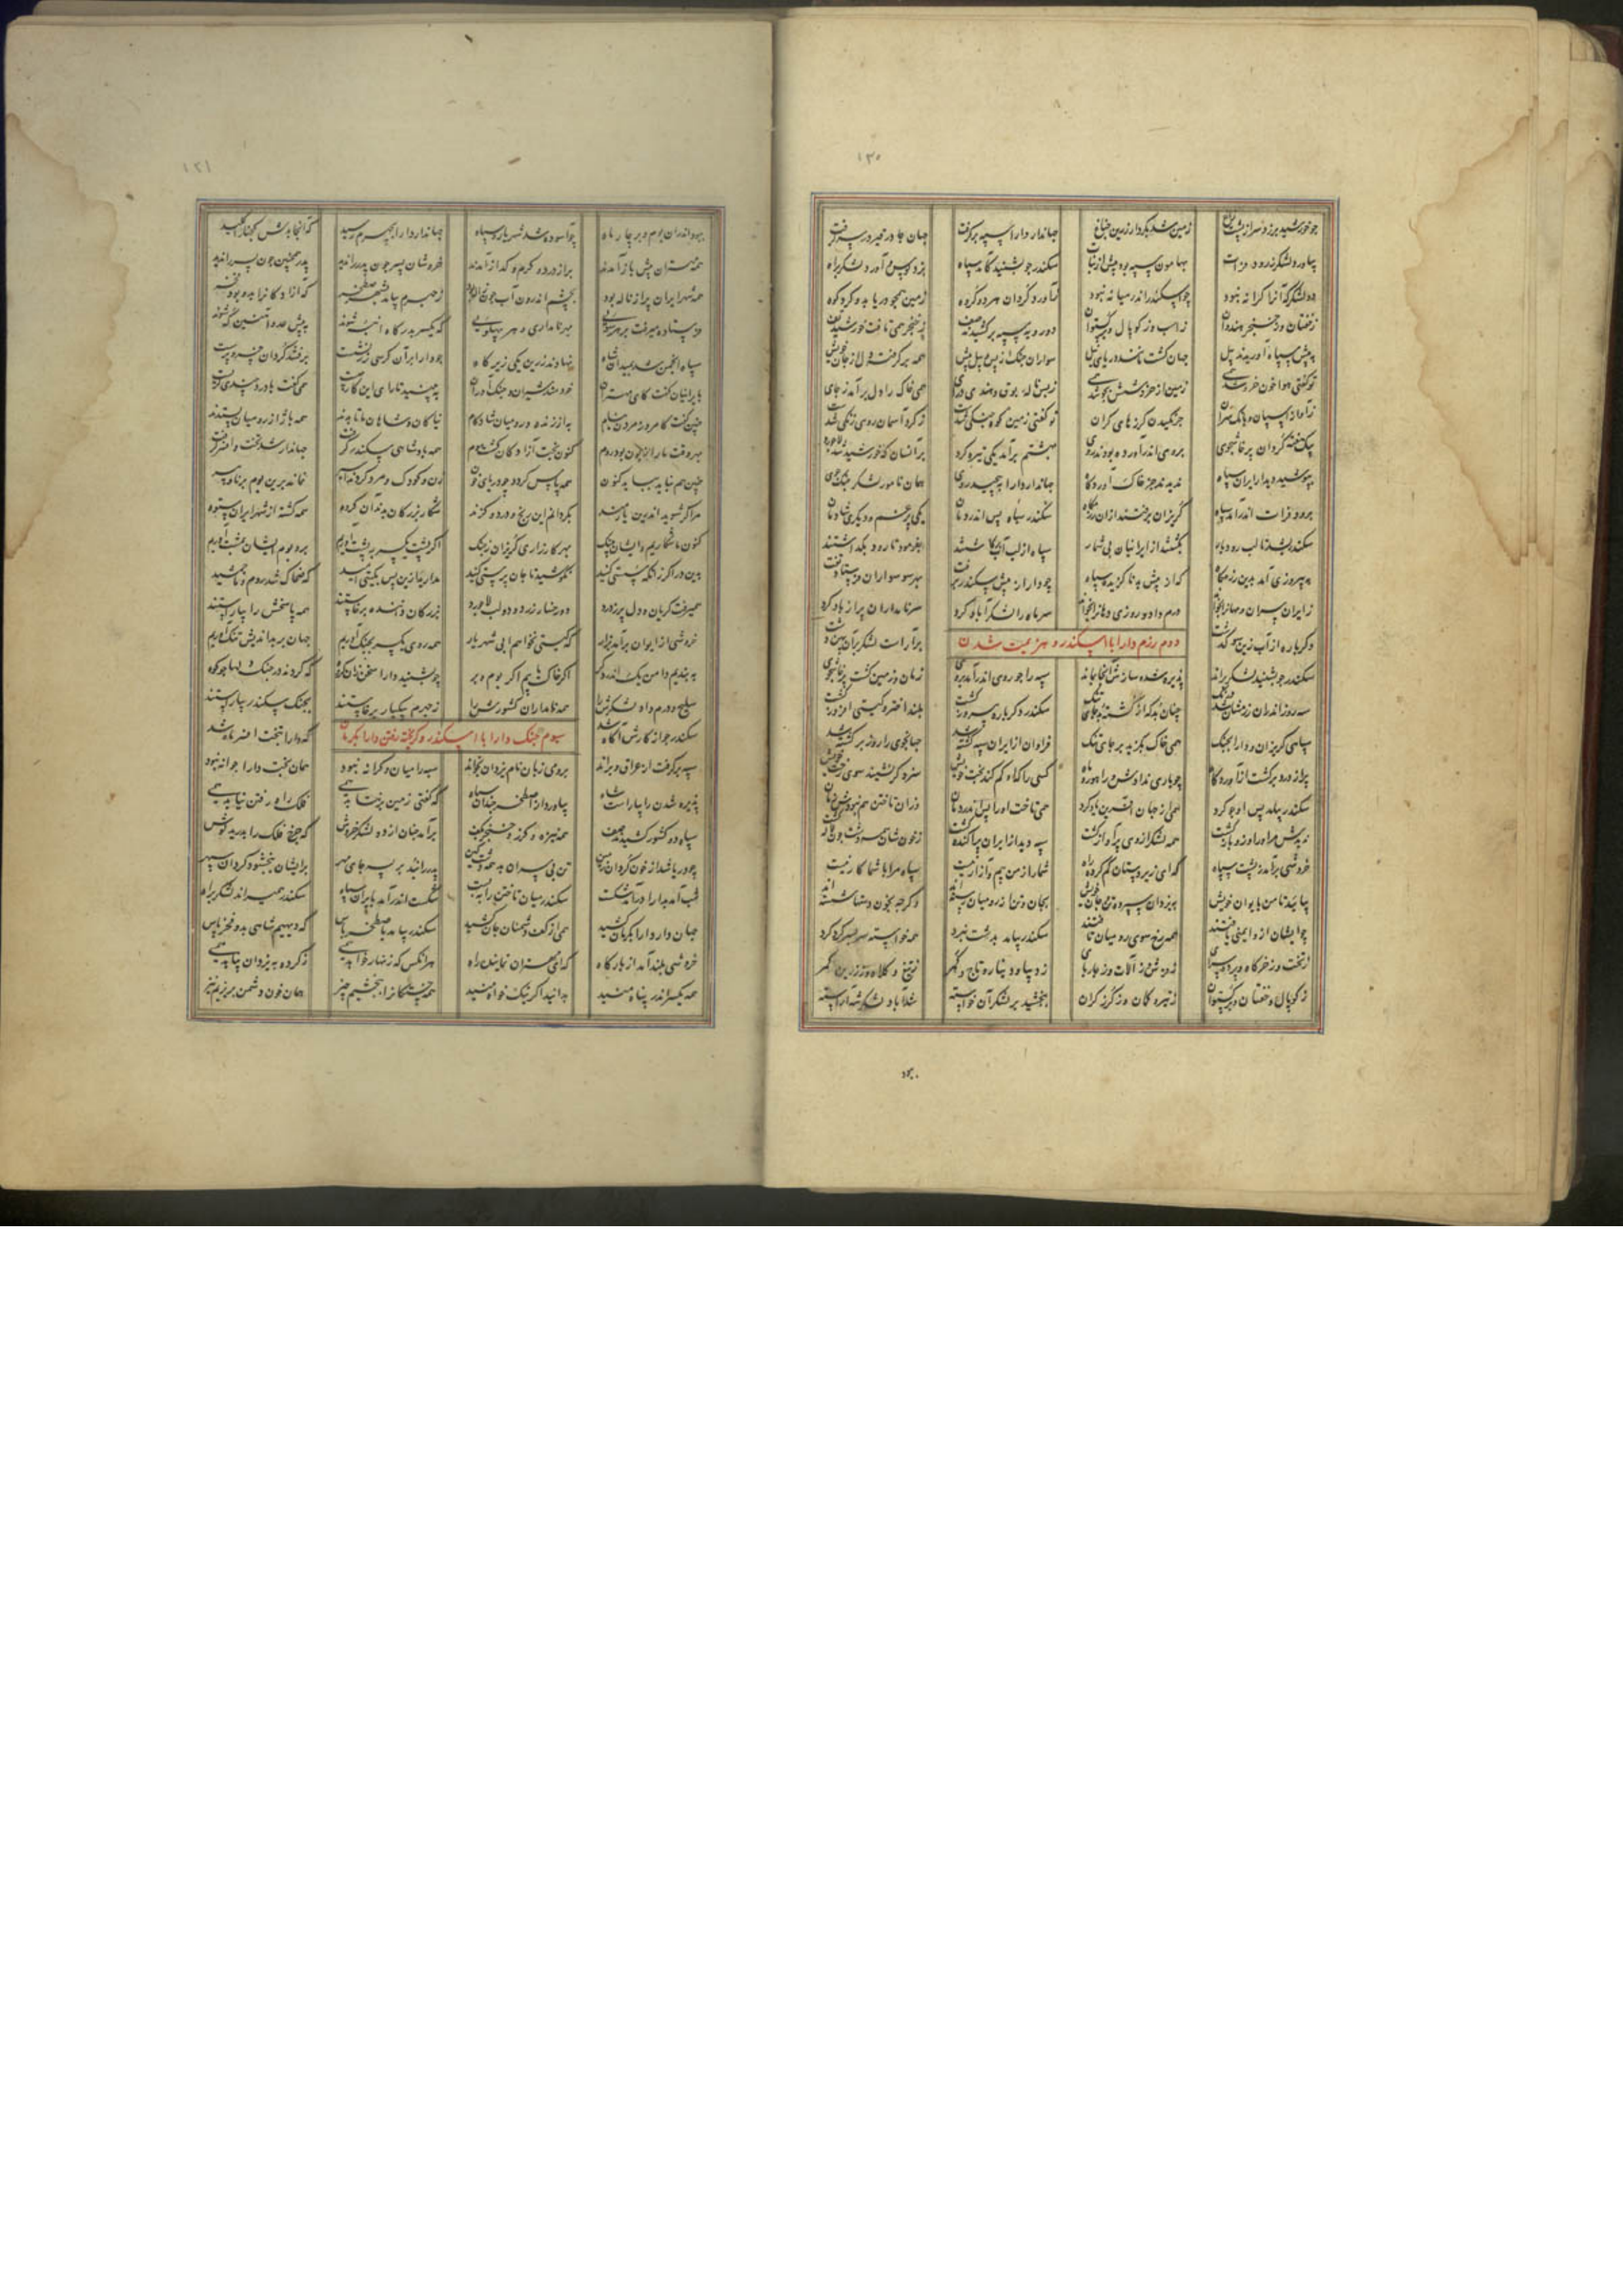 ۱۳۰
چو خورشید برزد سر از پشت زاغ زمین شد بکردار زرین چراغ جهاندار دارا سپه برگرفت جهان چادر قیر در سر گرفت
بیاورد لشکر ز رود فرات بهامون سپه بود بیش از نبات سکندر چو بشنید کامد سپاه بزد کوس و آورد لشکر براه
دو لشکر که آنرا کرانه نبود چو اسکندر اندر میانه نبود زمین همچو دریا بد و گرد کوه
ز خفتان وز خنجر هندوان ز اسب وز کوپال و برگستوان دو رویه سپه برکشیدند صف ز خنجر همی تافت خورشید تف
به پیش سپاه آوریدند پیل جهان گشت مانند دریای نیل سواران جنگ از پس و پیل پیش همه برگرفته دل از جان خویش
تو گفتی هوا خون خروشد همی زمین از خروشش بجوشد همی ز بس ناله بوق و هندی درای همی خاک را دل برآمد ز جای
ز آواز اسپان و بانگ سران جرنگیدن گرزهای گران تو گفتی زمین کوه جنگی شدست ز گرد آسمان روی زنگی شدست
یک هفته گردان پرخاشجوی بروی اندر آورده بودند روی بهشتم برآمد یکی تیره گرد بر آنسان که خورشید شد لاجورد
بپوشید دیدار ایران سپاه ندیدند جز خاک آوردگاه جهاندار دارا بپیچید روی همان نامور لشکر جنگ جوی
برود فرات اندر آمد سپاه گریزان برفتند از آن رزمگاه سکندر سپاه از پس اندر دمان یکی پر غم و دیگری شادمان
سکندر بشد تا لب رود بار بکشتند از ایرانیان بی شمار سپاه از لب آب بگذاشتند بفرمود تا رود بگذاشتند
به پیروزی آمد بدین رزمگاه که از پیش بد ناگزید سپاه چو دارا ز پیش سکندر برفت بهر سو سواران فرستاد تفت
ز ایران سران و مهانرا بخواند درم داد و روزی دهانرا بخواند سر ماه را لشکر آباد کرد سر نامداران پر از باد کرد
دوم رزم دارا با اسکندر و هزیمت شدن
دگرباره از آب زین سو گذشت برآراست لشکر بر آن پهن دشت
سکندر چو بشنید لشکر براند پذیره شد و سازش آنجا بماند سپه را چو روی اندر آمد بروی زمان و زمین گشت پرخاشجوی
سه روز اندران رزمشان شد درنگ چنان بد که از کشته شد جای تنگ سکندر دگرباره پیروز گشت بلند اختر و گیتی افروز گشت
سپاهی گریزان و دارا بجنگ همی خاک بگزید بر جای تنگ فراوان از ایران سپه کشته شد جهانجوی را روز برگشته شد
پر از درد برگشت از آوردگاه چو یاری ندادش و را هور و ماه
سکندر بیامد پس او چو گرد همی از جهان آفرین یاد کرد همی تاخت او را پس اندر دمان
خروشی برآمد ز پشت سپاه که ای زیردستان گم کرده راه شما را ز من بیم و آزار نیست سپاه مرا با شما کار نیست
بیایید تا من به ایوان خویش به یزدان سپرده تن و جان خویش بجان و تن از رومیان رسته‌اند وگرچه بخون دستها شسته‌اند
چو ایشان ازو ایمنی یافتند همه رخ سوی رومیان تافتند سکندر بیامد بدشت نبرد همه خواسته سر بسر گرد کرد
ز دیبا و دیناره و تاج و کمر ز تیغ و کلاه و ز زرین کمر
ز کوپال و خفتان و برگستوان ز تیر و کمان وز گرز گران ببخشید بر لشکر آن خواسته شد آباد لشکرش آراسته
ببود
۱۳۱
ببود اندران بوم و بر چار ماه چو آسوده شد شهریار و سپاه جهاندار دارا بجهرم رسید که آنجا بدش گنجها را کلید
همه مهتران پیش باز آمدند پر از درد و گرم و گداز آمدند خروشان پسر چون پدر را ندید پدر همچنین چون پسر را ندید
همه شهر ایران پر از ناله بود بچشم اندرون آب چون ژاله بود ز جهرم بیامد بشهر اصطخر که آزادگان را بدو بود فخر
فرستاده میرفت بر هر سوئی بهر نامداری و هر پهلوئی
سپاه انجمن شد بمیدان شاه نهادند زرین یکی زیرگاه چو دارا بر آن کرسی زر نشست برفتند گردان خسرو پرست
بایرانیان گفت کای مهتران خردمند شیران و جنگ آوران ببینید تا رای این کار چیست همی گفت با درد و چندی گریست
چنین گفت کامروز مردن بنام به از زنده دشمن بدو شادکام نیاکان و شاهان ما تا بدند همه باژ از رومیان بستدند
بهر وقت ما را زبون بود روم کنون بخت آزادگان گشت شوم همه پادشاهی سکندر گرفت جهاندار شد تخت و افسر گرفت
چنین هم نپاید بیاید کنون همه پارس گردد چو دریای خون زن و کودک و مرد گردد اسیر نماند برین بوم برنا و پیر
مرا گر شوید اندرین یارمند بگردانم این رنج و درد و گزند شکار بزرگان بدند آن گروه همه گشته از شهر ایران ستوه
کنون ما شکاریم و ایشان پلنگ بهر کارزاری گریزان ز جنگ اگر پشت یکسر به پشت آوریم بر و بوم ایشان بمشت آوریم
بدین در اگر زآنکه سستی کنید بکوشید تا جان پرستی کنید مدارید ازین پس بگیتی امید که ضحاک شد روم و ما جمشید
همیگفت گریان و دل پر ز درد دو رخسار زرد و دو لب لاجورد بزرگان داننده برخاستند همه پاسخش را بیاراستند
خروشی از ایوان برآمد بزار که گیتی نخواهیم بی شهریار همه روی یکسر بجنگ آوریم جهان بر بداندیش تنگ آوریم
ببندیم دامن یک اندر دگر اگر خاک یابیم اگر بوم و بر چو بشنید دارا سخن زان گروه
سلیح و درم داد لشکرش را همه نامداران کشورش را ز جهرم بیکبار برخاستند بجنگ سکندر بیاراستند
سیوم جنگ دارا با اسکندر و گریخته رفتن دارا بکرمان
سکندر چو از کارش آگاه شد که دارا بتخت افسر ماه شد
سپه برگرفت از عراق و براند برومی زبان نام یزدان بخواند سپه را میان و کرانه نبود همان بخت دارا جوانه نبود
پذیره شدن را بیاراست شاه بیاورد از اصطخر چندان سپاه که گفتی زمین برنتابد همی فلک راه رفتن نیابد همی
سپاه دو کشور کشیدند صف همه نیزه و گرز و خنجر بکف برآمد چنان از دو لشکر خروش که چرخ فلک را بدرید گوش
چو دریا شد از خون گردان زمین
شب آمد بدارا درآمد شکست سکندر میان تاختن را ببست سکندر همیراند لشکر براه
جهاندار دارا بکرمان کشید همی از کف دشمنان جان کشید سکندر بیامد باصطخر پارس که دیهیم شاهی بدو فخر پارس
خروشی بلند آمد از بارگاه که ای مهتران نماینده راه هر آنکس که زنهار خواهد همی ز کرده به یزدان پناهد همی
همه یکسر اندر پناه منید بدانید اگر نیکخواه منید همه خستگان را ببخشیم چیز همان خون دشمن نریزیم نیز